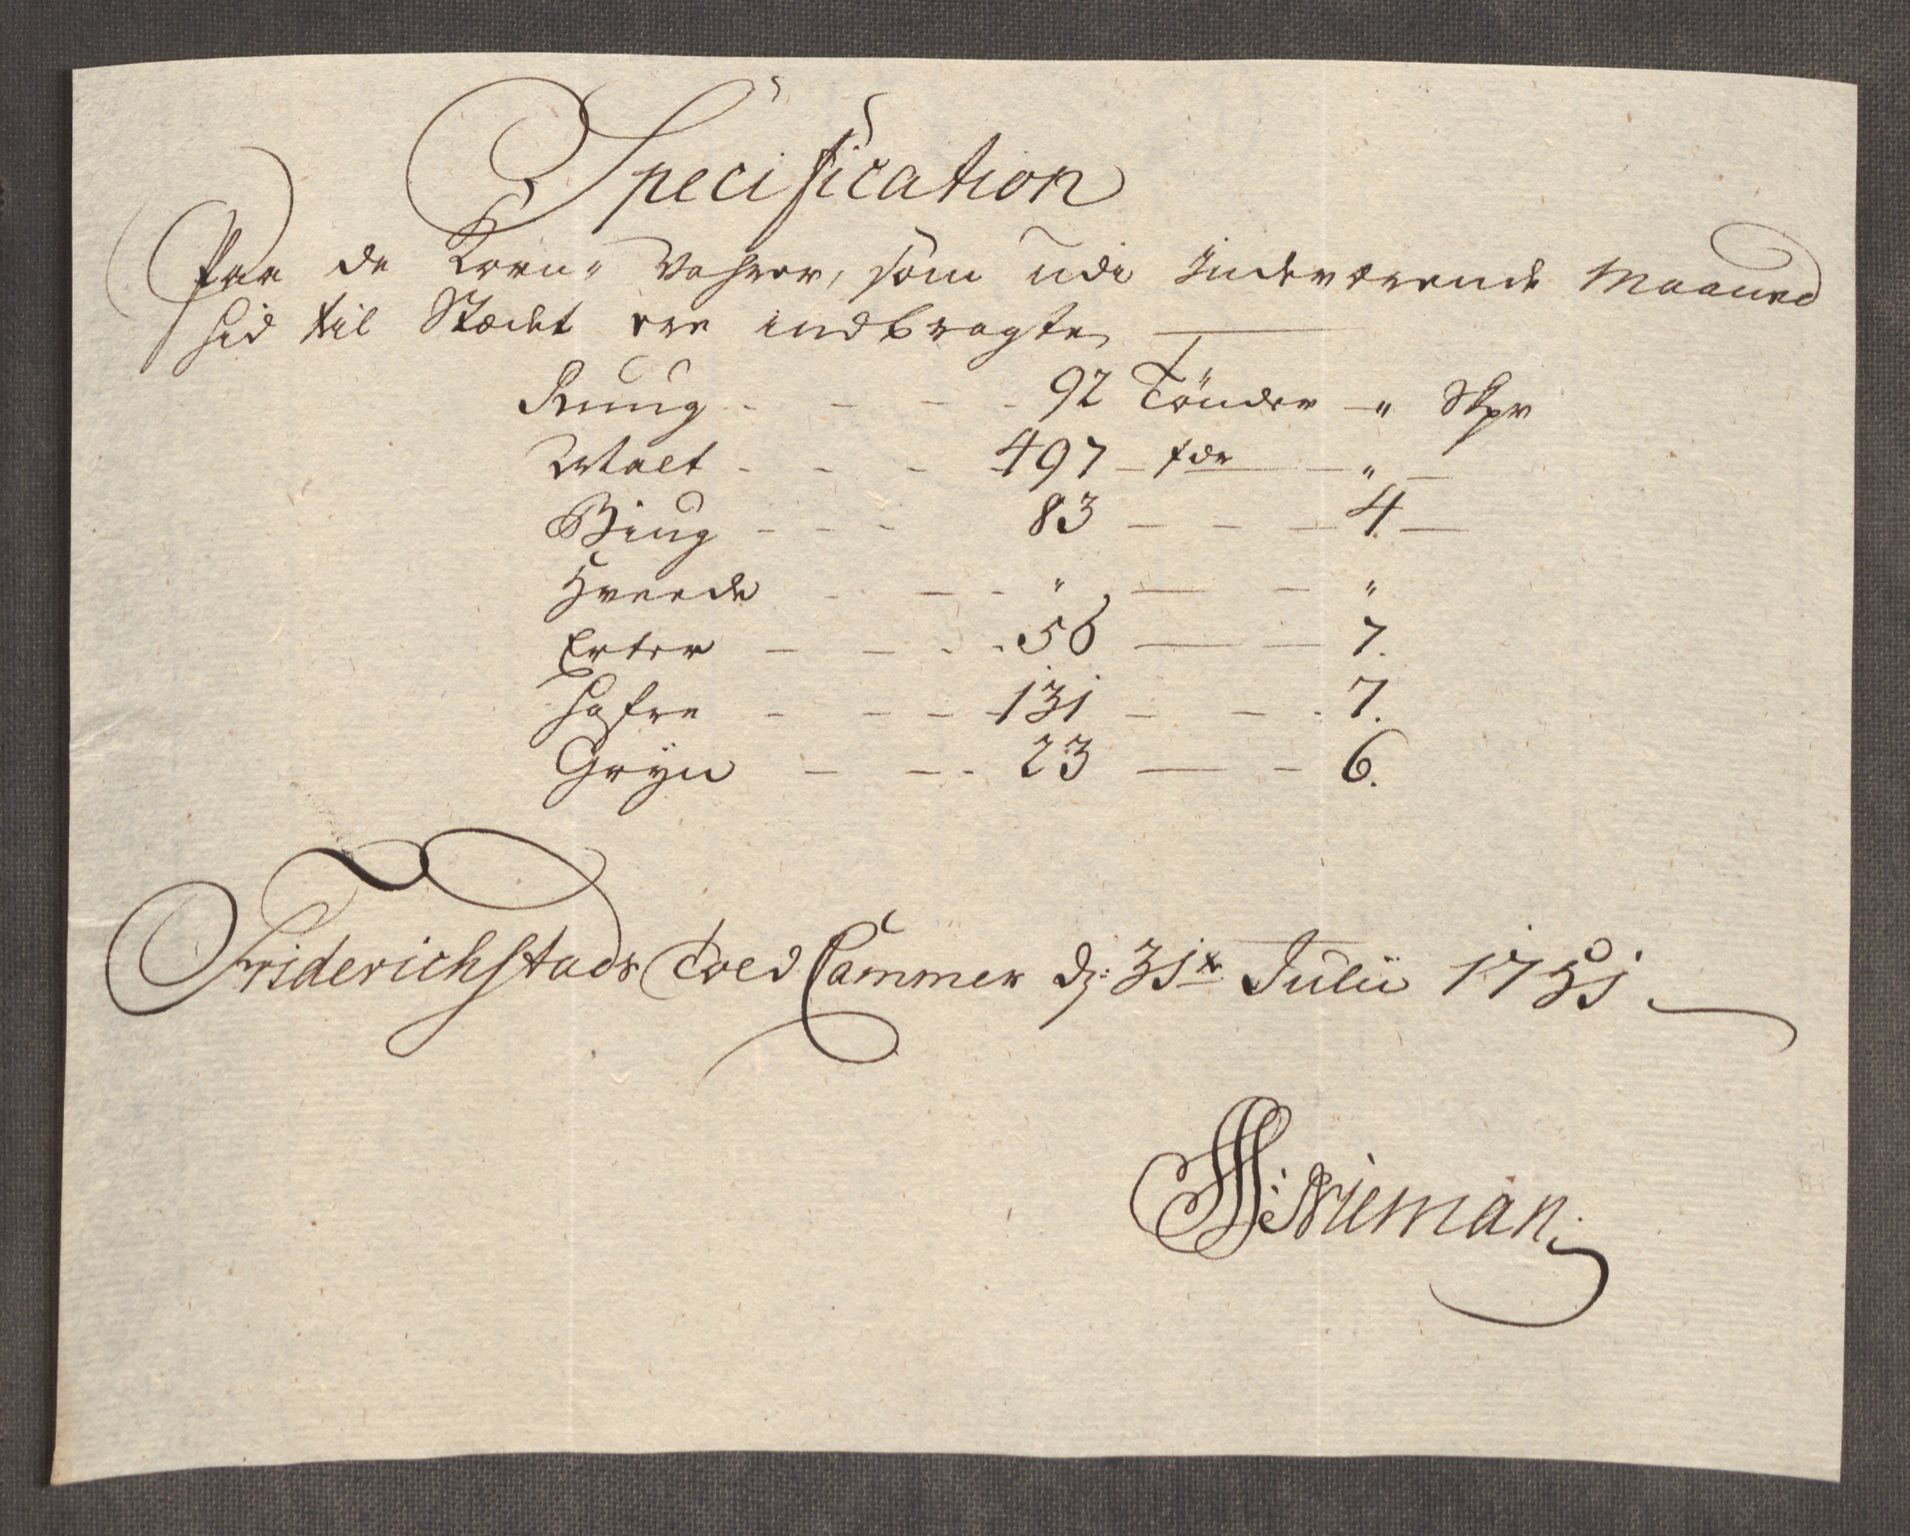 Specification
Paa de Korn- Vahrer, som udi Indeværende Maaned
hid til Stædet ere indbragte
Ruug - - - - 92 Tønder - " Skpr
Malt - - - 497 - tdr - " -
Biug - - - 83 - - - 4 -
Hveede - - - " - - "
Erter - - - - 56 - - 7.
Hafre - - - 131 - - - 7.
Gryn - - - 23 - - 6.
Friderichstads Told Cammer d: 31te Julii 1751
Nieman.